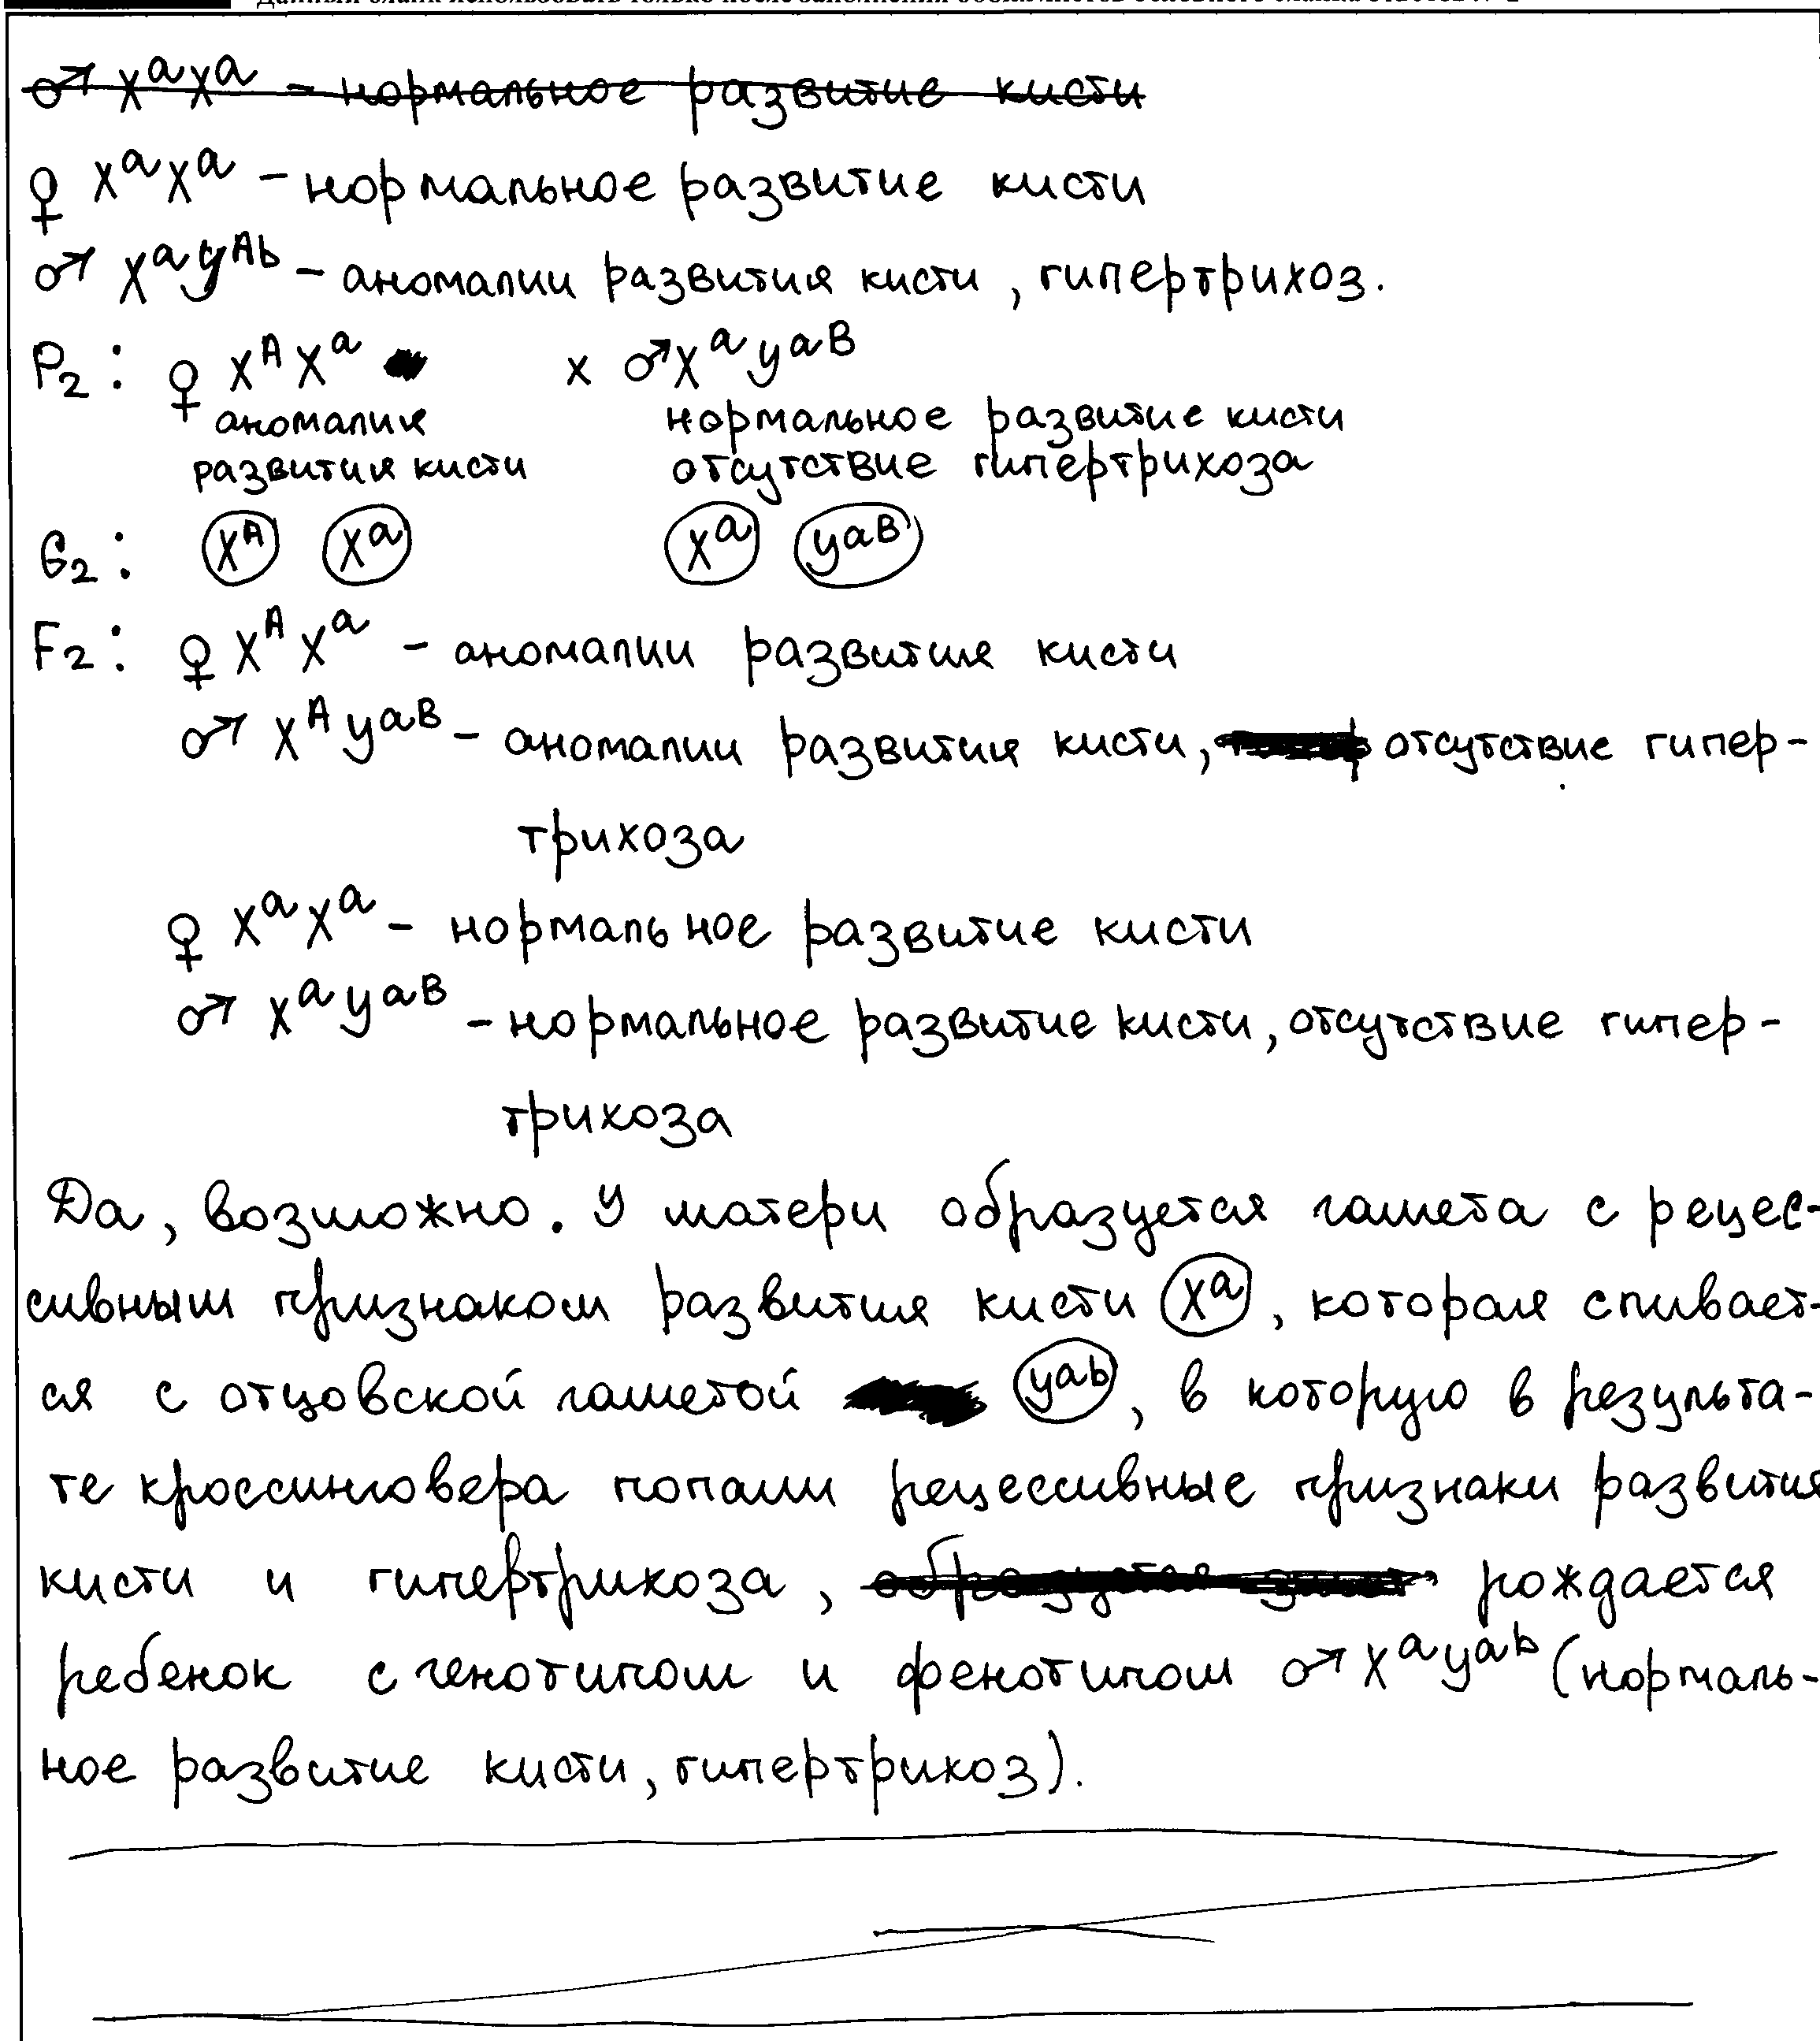 Данный бланк использовать только после заполнения обоих листов основного бланка ответов № 2
♂ XᵃXᵃ – нормальное развитие кисти
♀ XᵃXᵃ – нормальное развитие кисти
♂ Xᵃyᴬᵇ – аномалии развития кисти, гипертрихоз.
P₂: ♀ XᴬXᵃ x ♂Xᵃyᵃᴮ
аномалия нормальное развитие кисти
развития кисти отсутствие гипертрихоза
G₂: Xᴬ Xᵃ Xᵃ yᵃᴮ
F₂: ♀ XᴬXᵃ – аномалии развития кисти
♂ Xᴬyᵃᴮ – аномалии развития кисти, отсутствие гипер-
трихоза
♀ XᵃXᵃ – нормальное развитие кисти
♂ Xᵃyᵃᴮ – нормальное развитие кисти, отсутствие гипер-
трихоза
Да, возможно. У матери образуется гамета с рецес-
сивным признаком развития кисти Xᵃ, которая сливает-
ся с отцовской гаметой yᵃᵇ, в которую в результа-
те кроссинговера попали рецессивные признаки развития
кисти и гипертрихоза, рождается
ребенок с генотипом и фенотипом ♂ Xᵃyᵃᵇ (нормаль-
ное развитие кисти, гипертрихоз).